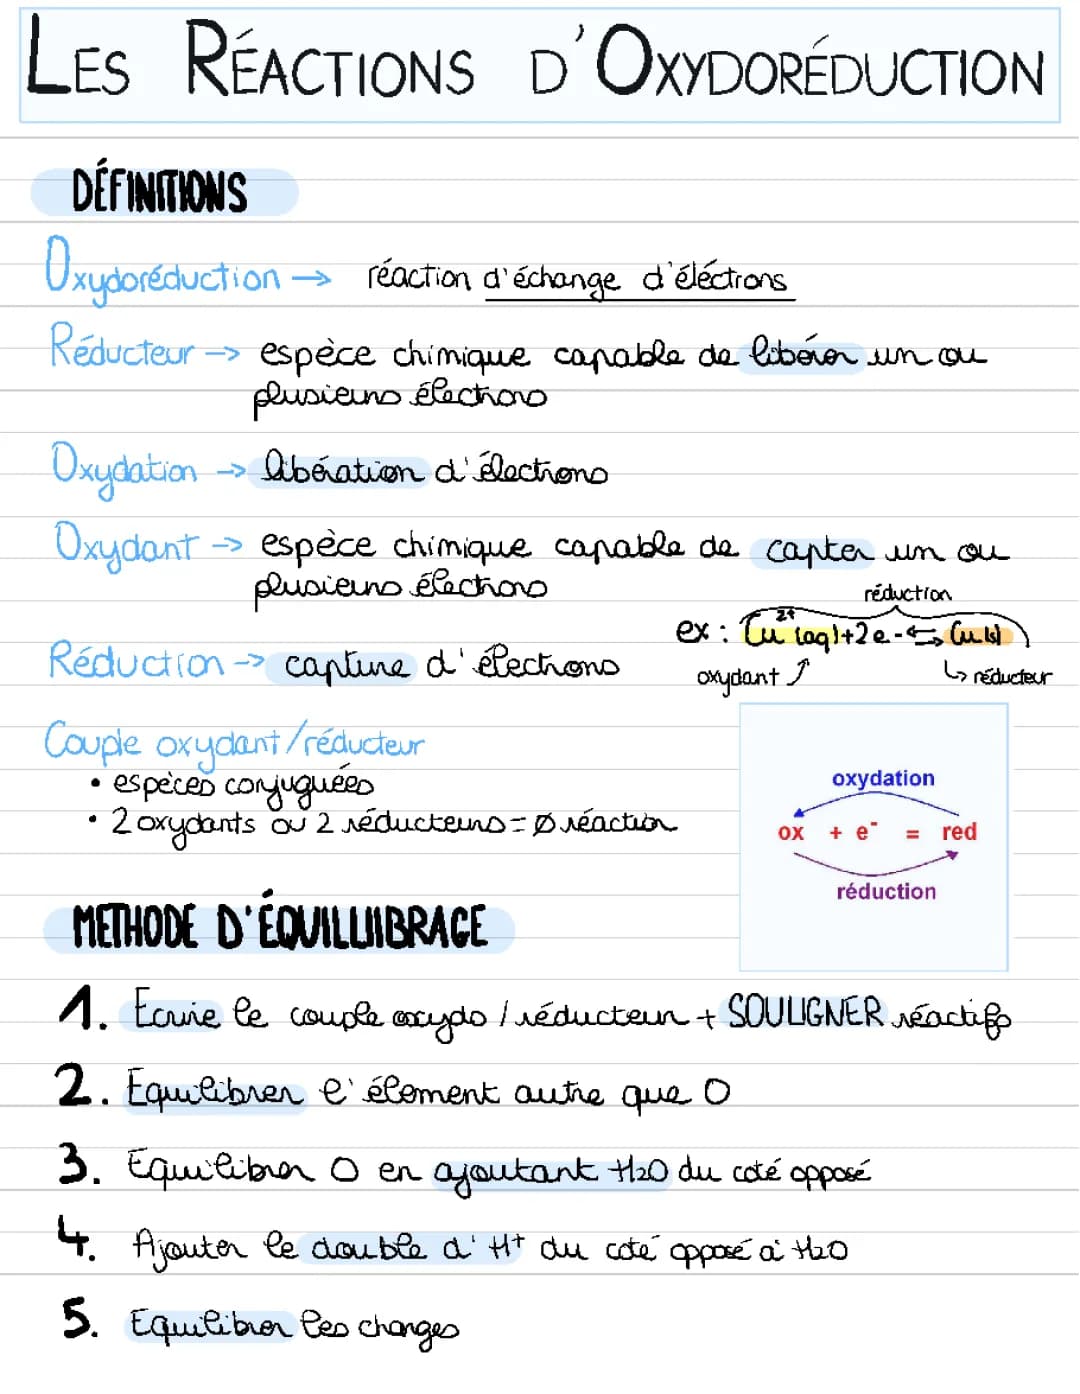 LES RÉACTIONS D'OXYDORÉDUCTION
DÉFINITIONS
Oxydoréduction → réaction d'échange d'éléctrons
Réducteur → espèce chimique capable de libérer un ou
plusieurs électrons
Oxydation → libération d'électrons
Oxydant → espèce chimique capable de capter un ou
plusieurs électrons
réduction
ex : Cu²⁺(aq)+2e-⇆Cu(s)
oxydant ↗ ↳ réducteur
Réduction → capture d'électrons
Couple oxydant/réducteur
• espèces conjuguées
• 2 oxydants ou 2 réducteurs = Ø réaction
oxydation
ox + e⁻ = red
réduction
METHODE D'ÉQUILLIIBRAGE
1. Ecrire le couple oxydo / réducteur + SOULIGNER réactifs
2. Equilibrer l'élement autre que O
3. Equilibrer O en ajoutant H2O du coté opposé
4. Ajouter le double d'H⁺ du coté opposé à H2O
5. Equilibrer les charges